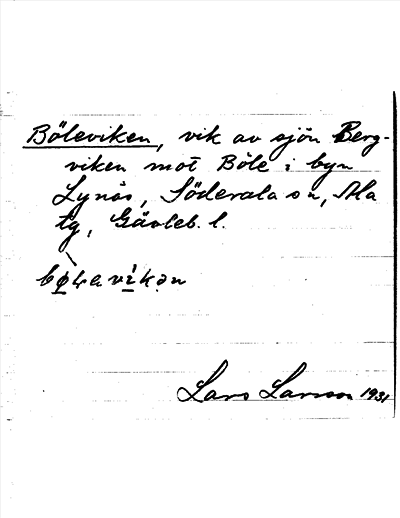 Böleviken, vik av sjön Berg-
viken mot Böle i byn
Lynås, Söderala sn, Ala
tg, Gävleb. l.
bø̀ɽavìkən
Lars Larsson 1931